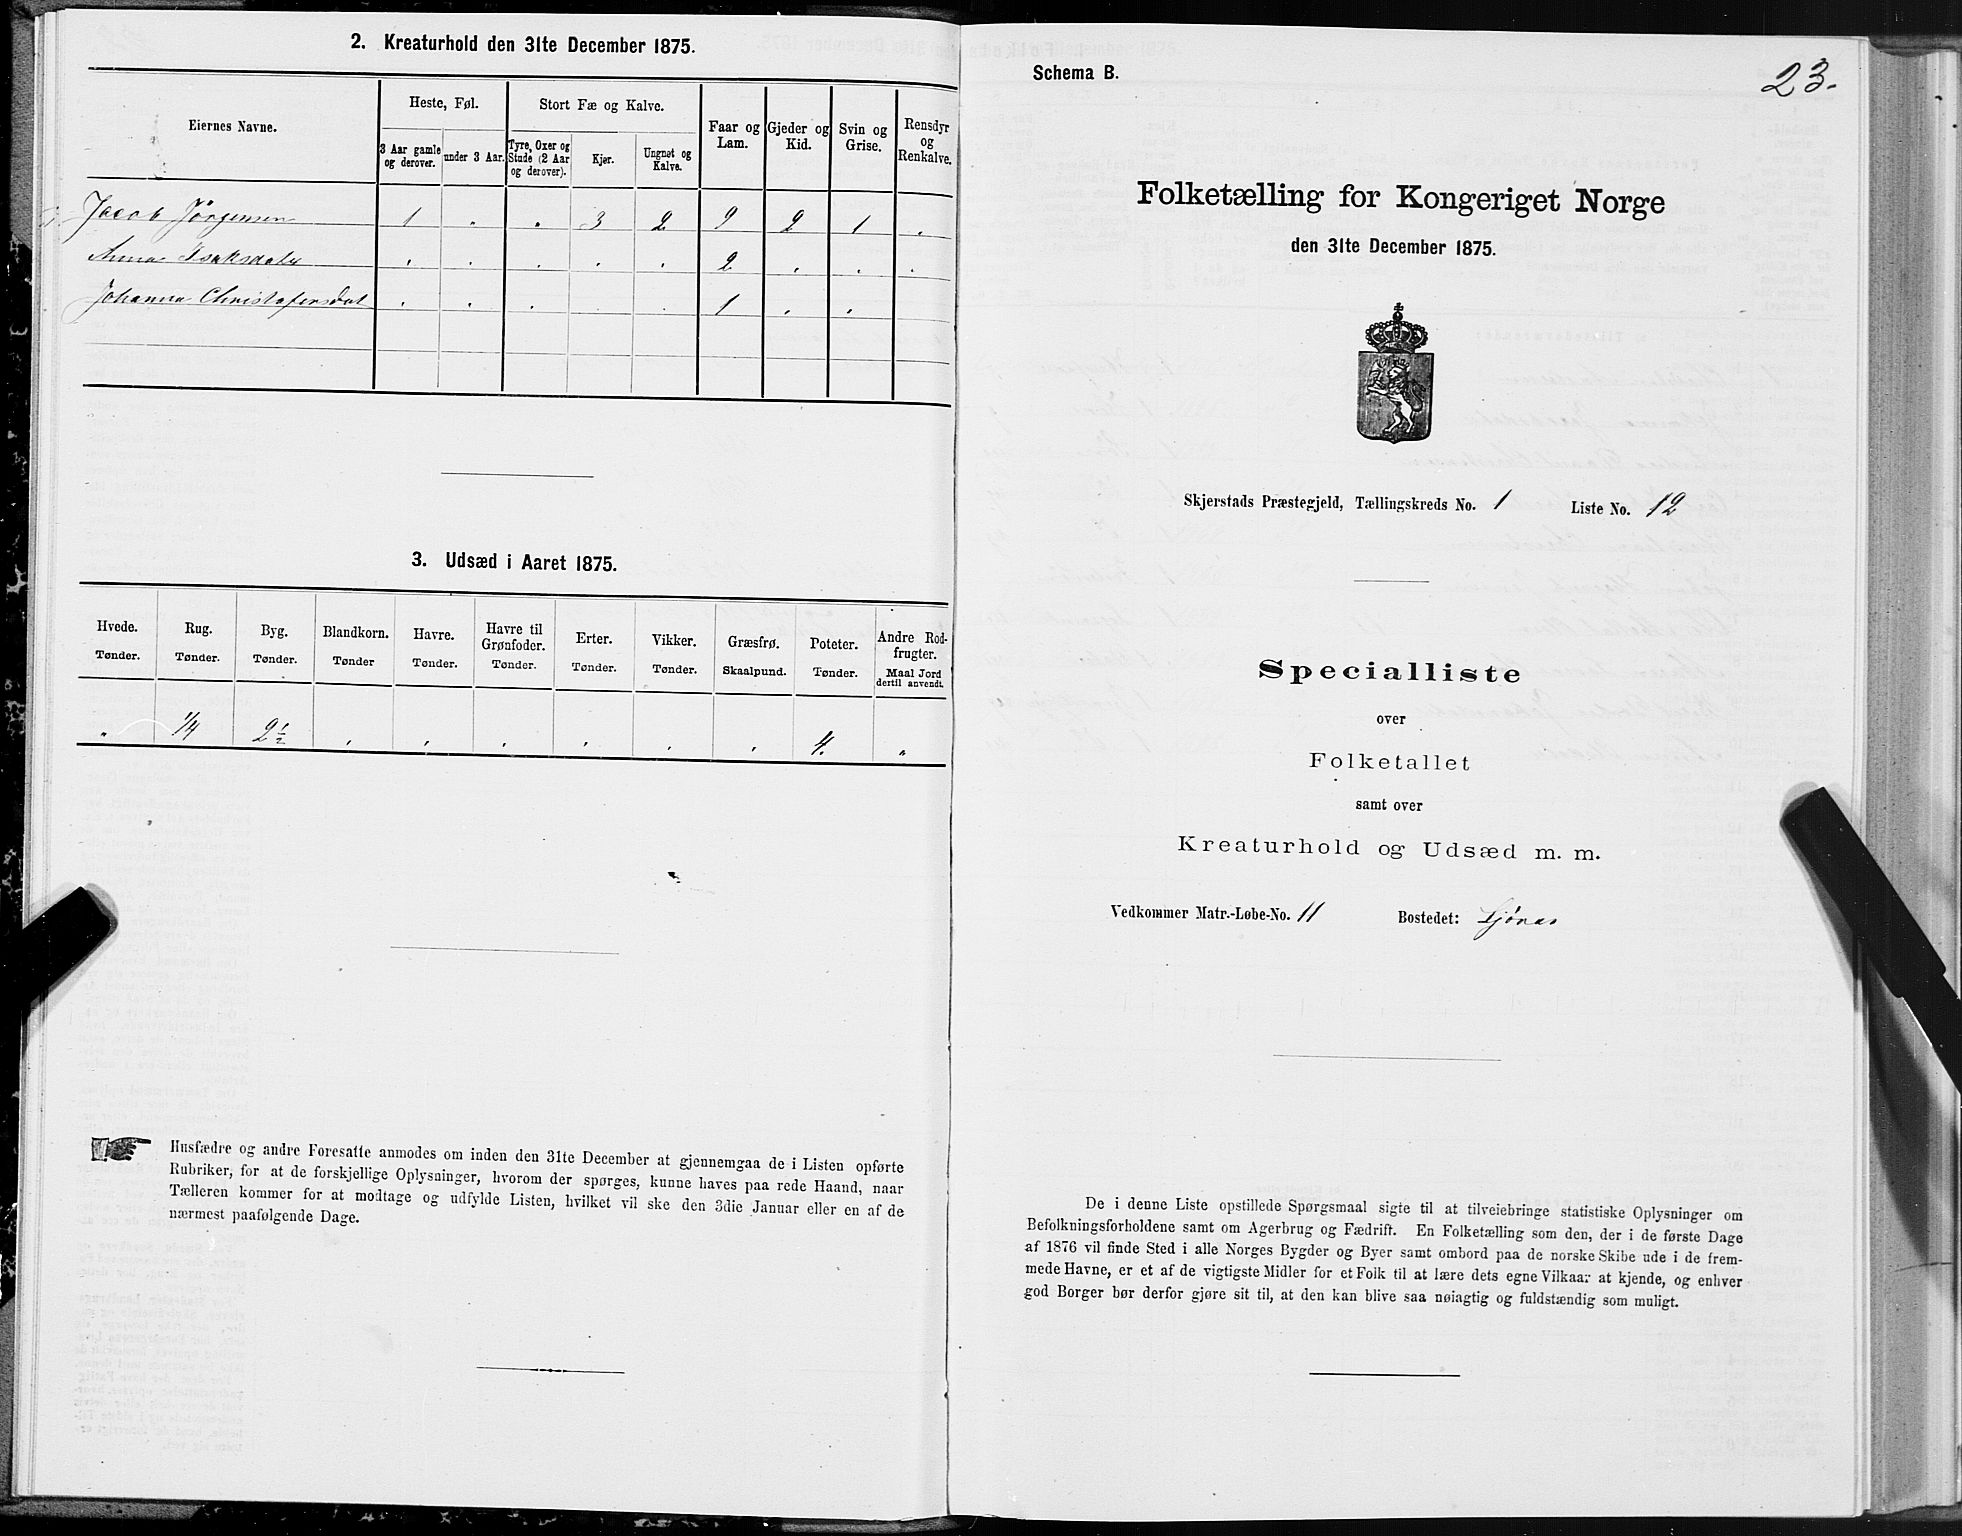 2. Kreaturhold den 31te December 1875.
Eiernes Navne.
Heste, Føl.
Stort Fæ og Kalve.
Faar og Lam.
Gjeder og Kid.
Svin og Grise.
Rensdyr og Renkalve.
3 Aar gamle og derover.
under 3 Aar.
Tyre, Oxer og Stude (2 Aar og derover).
Kjør.
Ungnøt og Kalve.
Jacob Jörgensen 1 . . 3 2 9 2 1 .
Anna Isaksdatr . . . . . 2 . . .
Johanna Christofersdat . . . . . 1 . .
3. Udsæd i Aaret 1875.
Hvede. Rug. Byg. Blandkorn. Havre. Havre til Grønfoder. Erter. Vikker. Græsfrø. Poteter. Andre Rodfrugter.
Tønder. Tønder. Tønder. Tønder Tønder. Tønder. Tønder. Tønder. Skaalpund. Tønder. Maal Jord dertil anvendt.
" 1/4 2 1/2 , , , , , , 4. "
Husfædre og andre Foresatte anmodes om inden den 31te December at gjennemgaa de i Listen opførte
Rubriker, for at de forskjellige Oplysninger, hvorom der spørges, kunne haves paa rede Haand, naar
Tælleren kommer for at modtage og udfylde Listen, hvilket vil ske den 3die Januar eller en af de
nærmest paafølgende Dage.
Schema B.
23.
Folketælling for Kongeriget Norge
den 31te December 1875.
Skjerstads Præstegjeld, Tællingskreds No. 1 Liste No. 12
Specialliste
over
Folketallet
samt over
Kreaturhold og Udsæd m. m.
Vedkommer Matr.-Løbe-No. 11 Bostedet: Ljönes
De i denne Liste opstillede Spørgsmaal sigte til at tilveiebringe statistiske Oplysninger om
Befolkningsforholdene samt om Agerbrug og Fædrift. En Folketælling som den, der i de første Dage
af 1876 vil finde Sted i alle Norges Bygder og Byer samt ombord paa de norske Skibe ude i de frem-
mede Havne, er et af de vigtigste Midler for et Folk til at lære dets egne Vilkaar at kjende, og enhver
god Borger bør derfor gjøre sit til, at den kan blive saa nøiagtig og fuldstændig som muligt.